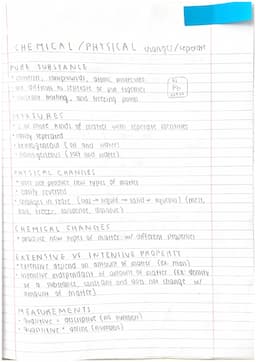 CHEMICAL/PHYSICAL changes/separate
PURE SUBSTANCE
compounds, atomic molecules
are difficult to separate or put together
melting, and freezing point
MIXTURES
2 or more kinds of matter with separate identities
easily separated
heterogeneous (oil and water)
homogeneous (salt and water)
PHYSICAL CHANGES
does not produce new types of matter
easily reversed
changes in state (gas → liquid → solid → aqueous) (melt,
boil, freeze, condense, dissolve)
CHEMICAL CHANGES
produce new types of matter w/ different properties
EXTENSIVE VS INTENSIVE PROPERTY
extensive depend on amount of matter (ex: mass)
intensive independent of amount of matter (ex: density
of a substance, constant and does not change w/
amount of matter)
MEASUREMENTS
qualitative = descriptive (no number)
quantitative = (numbers)